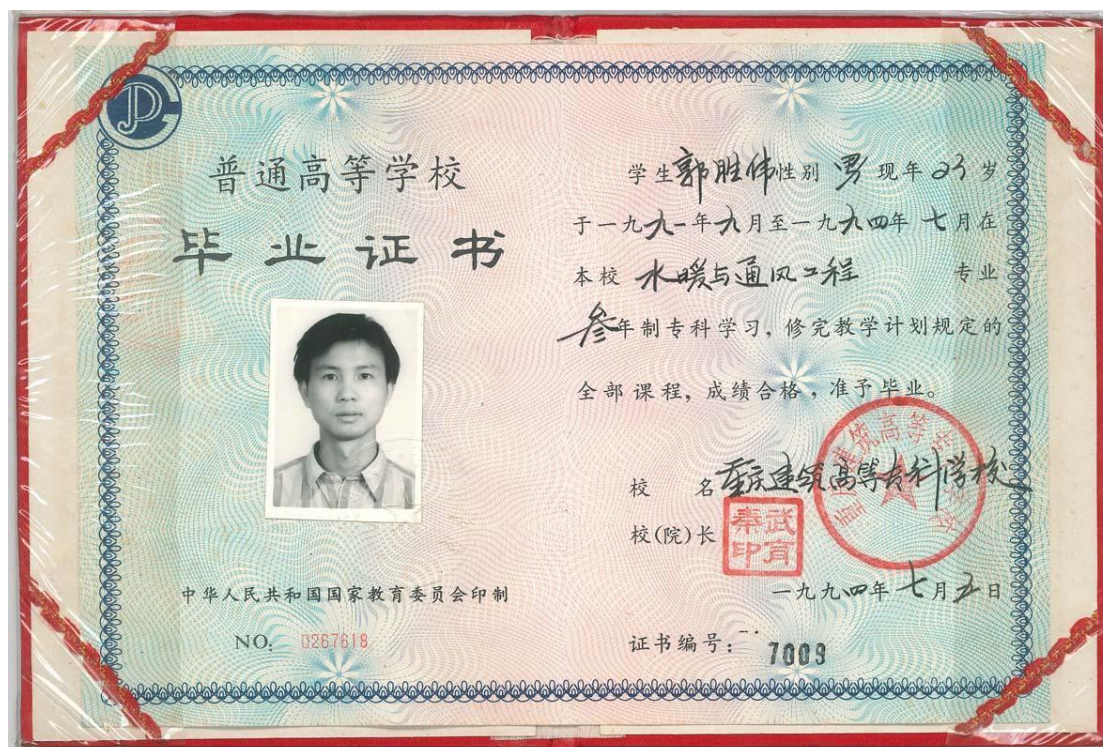 普通高等学校
毕业证书
中华人民共和国国家教育委员会印制
NO: 0267618
学生郭胜伟性别 男 现年23岁
于一九九一年九月至一九九四年七月在
本校 水暖与通风工程 专业
叁年制专科学习，修完教学计划规定的
全部课程，成绩合格，准予毕业。
校 名 重庆建筑高等专科学校
校(院)长
一九九四年七月五日
证书编号： 7009
重庆建筑高等专科学校